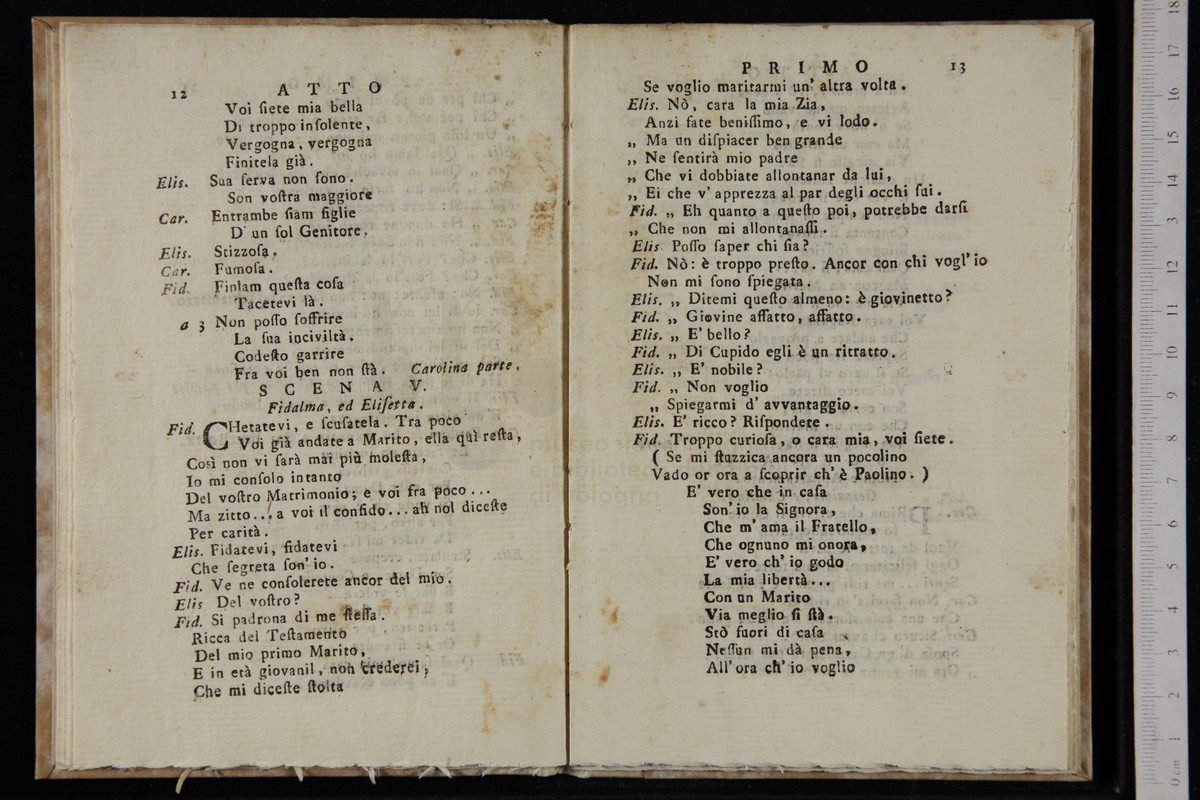 12 ATTO
Voi ſiete mia bella
Di troppo inſolente,
Vergogna, vergogna
Finitela già.
Elis. Sua ſerva non ſono.
Son voſtra maggiore
Car. Entrambe ſiam figlie
D' un ſol Genitore,
Elis. Stizzoſa.
Car. Fumoſa.
Fid. Finiam queſta coſa
Tacetevi là.
a 3 Non poſſo ſoffrire
La ſua inciviltà.
Codeſto garrire
Fra voi ben non ſtà. Carolina parte.
SCENA V.
Fidalma, ed Eliſetta.
Fid. CHetatevi, e ſcuſatela. Tra poco
Voi già andate a Marito, ella quì reſta,
Così non vi ſarà mai più moleſta,
Io mi conſolo intanto
Del voſtro Matrimonio; e voi fra poco ...
Ma zitto... a voi il confido... ah nol diceſte
Per carità.
Elis. Fidatevi, fidatevi
Che ſegreta ſon' io.
Fid. Ve ne conſolerete ancor del mio.
Elis Del voſtro?
Fid. Si padrona di me ſteſſa.
Ricca del Teſtamento
Del mio primo Marito,
E in età giovanil, non crederei,
Che mi diceſte ſtolta
PRIMO 13
Se voglio maritarmi un' altra volta.
Elis. Nò, cara la mia Zia,
Anzi fate beniſſimo, e vi lodo.
„ Ma un diſpiacer ben grande
„ Ne ſentirà mio padre
„ Che vi dobbiate allontanar da lui,
„ Ei che v' apprezza al par degli occhi ſui.
Fid. „ Eh quanto a queſto poi, potrebbe darſi
„ Che non mi allontanaſſi.
Elis Poſſo ſaper chi ſia?
Fid. Nò: è troppo preſto. Ancor con chi vogl' io
Non mi ſono ſpiegata.
Elis. „ Ditemi queſto almeno: è giovinetto?
Fid. „ Giovine affatto, affatto.
Elis. „ E' bello?
Fid. „ Di Cupido egli è un ritratto.
Elis. „ E' nobile?
Fid. „ Non voglio
„ Spiegarmi d' avvantaggio.
Elis. E' ricco? Riſpondete.
Fid. Troppo curioſa, o cara mia, voi ſiete.
( Se mi ſtuzzica ancora un pocolino
Vado or ora a ſcoprir ch' è Paolino. )
E' vero che in caſa
Son' io la Signora,
Che m' ama il Fratello,
Che ognuno mi onora,
E' vero ch' io godo
La mia libertà...
Con un Marito
Via meglio ſi ſtà.
Stò fuori di caſa
Neſſun mi dà pena,
All' ora ch' io voglio